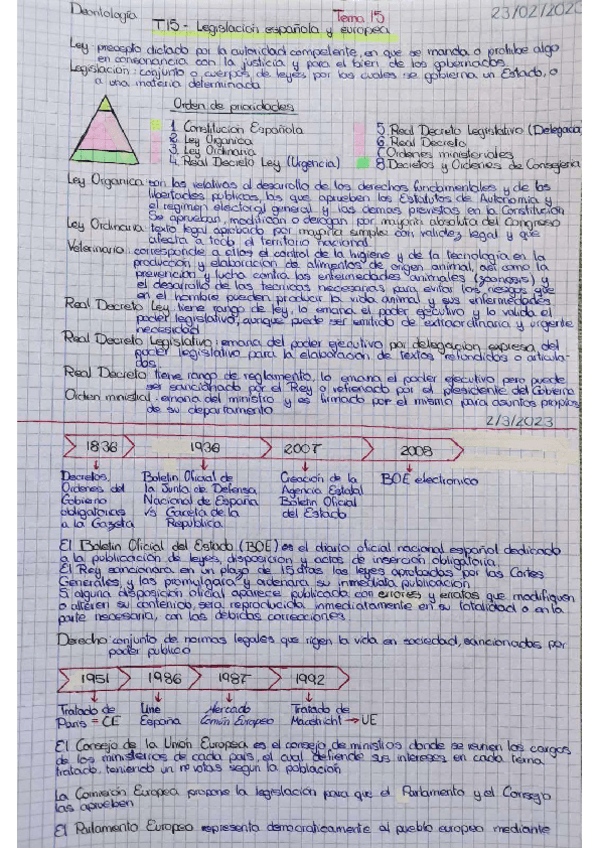 Deontología
Tema 15
23/02/202
T15 - Legislacion española y europea
Ley: precepto dictado por la autoridad competente, en que se manda o prohibe algo
en consonancia con la justicia y para el bien de los gobernados.
Legislacion: conjunto o cuerpos de leyes por los cuales se gobierna un Estado, o
a una materia determinada
Orden de prioridades
1. Constitucion Española
2. Ley Organica
3. Ley Ordinaria
4. Real Decreto Ley (Urgencia)
5. Real Decreto Legislativo (Delegacio
6. Real Decreto
Ordenes ministeriales
8 Decretos y Ordenes de Consejeria
Ley Organica son las relativas al desarrollo de los derechos fundamentales y de las
libertades publicas, las que aprueben los Estatutos de Autonomia y
el regimen electoral general y las demas previstas en la Constitucion
Se aprueban, modifican o derogan por mayoria absoluta del Congreso
Ley Ordinaria: texto legal aprobado por mayoria simple con validez legal y que
afecta a todo el territorio nacional
Veterinario: corresponde a ellos el control de la higiene y de la tecnologia en la
produccion y elaboracion de alimentos de origen animal, asi como la
prevencion y lucha contra las enfermedades animales (zoonosis) y
el desarrollo de las tecnicas necesarias para evitar los riesgos que
en el hombre pueden producir la vida animal y sus enfermedades
Real Decreto Ley tiene rango de ley, lo emana el poder ejecutivo y lo valida el
poder legislativo, aunque puede ser emitido de extraordinaria y urgente
necesidad
Real Decreto Legislativo: emana del poder ejecutivo por delegacion expresa del
poder legislativo para la elaboracion de textos refundidos o articula-
dos.
Real Decreto tiene rango de reglamento, lo emana el poder ejecutivo pero puede
ser sancionado por el Rey o refrenado por el presidente del Gobierno
Orden ministrial: emana del ministro y es firmado por el mismo para asuntos propios
de su departamento
2/3/2023
1836 1936 2007 2008
Decretos, Boletin Oficial de Creacion de la BOE electronico
Ordenes del la Junta de Defensa Agencia Estatal
Gobierno Nacional de España Boletin Oficial
obligatorias vs Gaceta de la del Estado
a la Gazeta Republica
El Boletin Oficial del Estado (BOE) es el diario oficial nacional español dedicado
a la publicacion de leyes, disposicion y actos de insercion obligatoria.
El Rey sancionara en un plazo de 15 dias las leyes aprobadas por las Cortes
Generales, y las promulgara y ordenara su inmediata publicacion
Si alguna disposicion oficial aparece publicada con errores y erratas que modifiquen
o alteren su contenido, sera reproducida inmediatamente en su totalidad o en la
parte necesaria, con las debidas correcciones
Derecho conjunto de normas legales que rigen la vida en sociedad, sancionadas por
poder publico
1951 1986 1987 1992
Tratado de Une Mercado Tratado de
Paris = CE España Comun Europeo Maastricht → UE
El Consejo de la Union Europea es el consejo de ministros donde se reunen los cargos
de los ministerios de cada pais, el cual defiende sus intereses en cada tema
tratado, teniendo un nº votos segun la poblacion
La Comision Europea propone la legislacion para que el Parlamento y el Consejo
las aprueben
El Parlamento Europeo representa democraticamente al pueblo europeo mediante